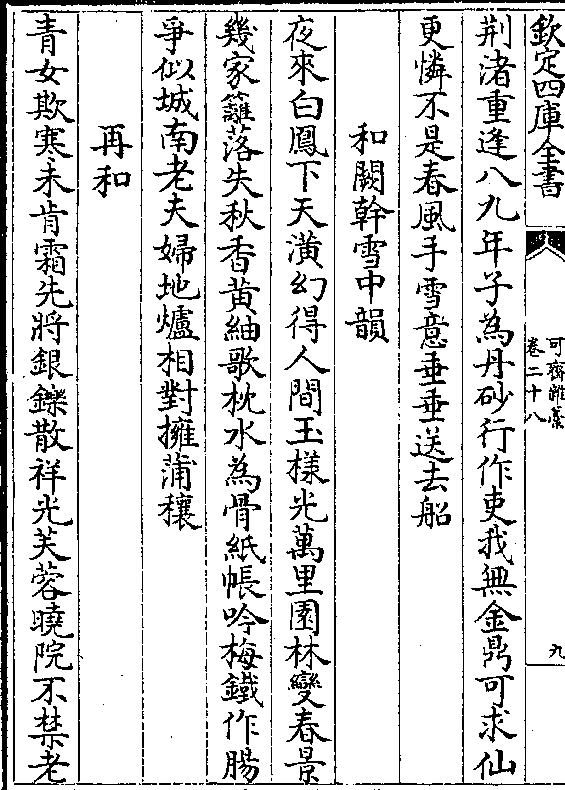 欽定四庫全書
可齋雜藁
卷二十八
九
荆渚重逢八九年子為丹砂行作吏我無金鼎可求仙
更憐不是春風手雪意垂垂送去船
和闕幹雪中韻
夜來白鳳下天潢幻得人間玉様光萬里園林變春景
幾家籬落失秋香黄紬歌枕水為骨紙帳吟梅鐵作腸
爭似城南老夫婦地爐相對擁蒲穰
再和
青女欺寒未肯霜先將銀鑠散祥光芙蓉曉院不禁老